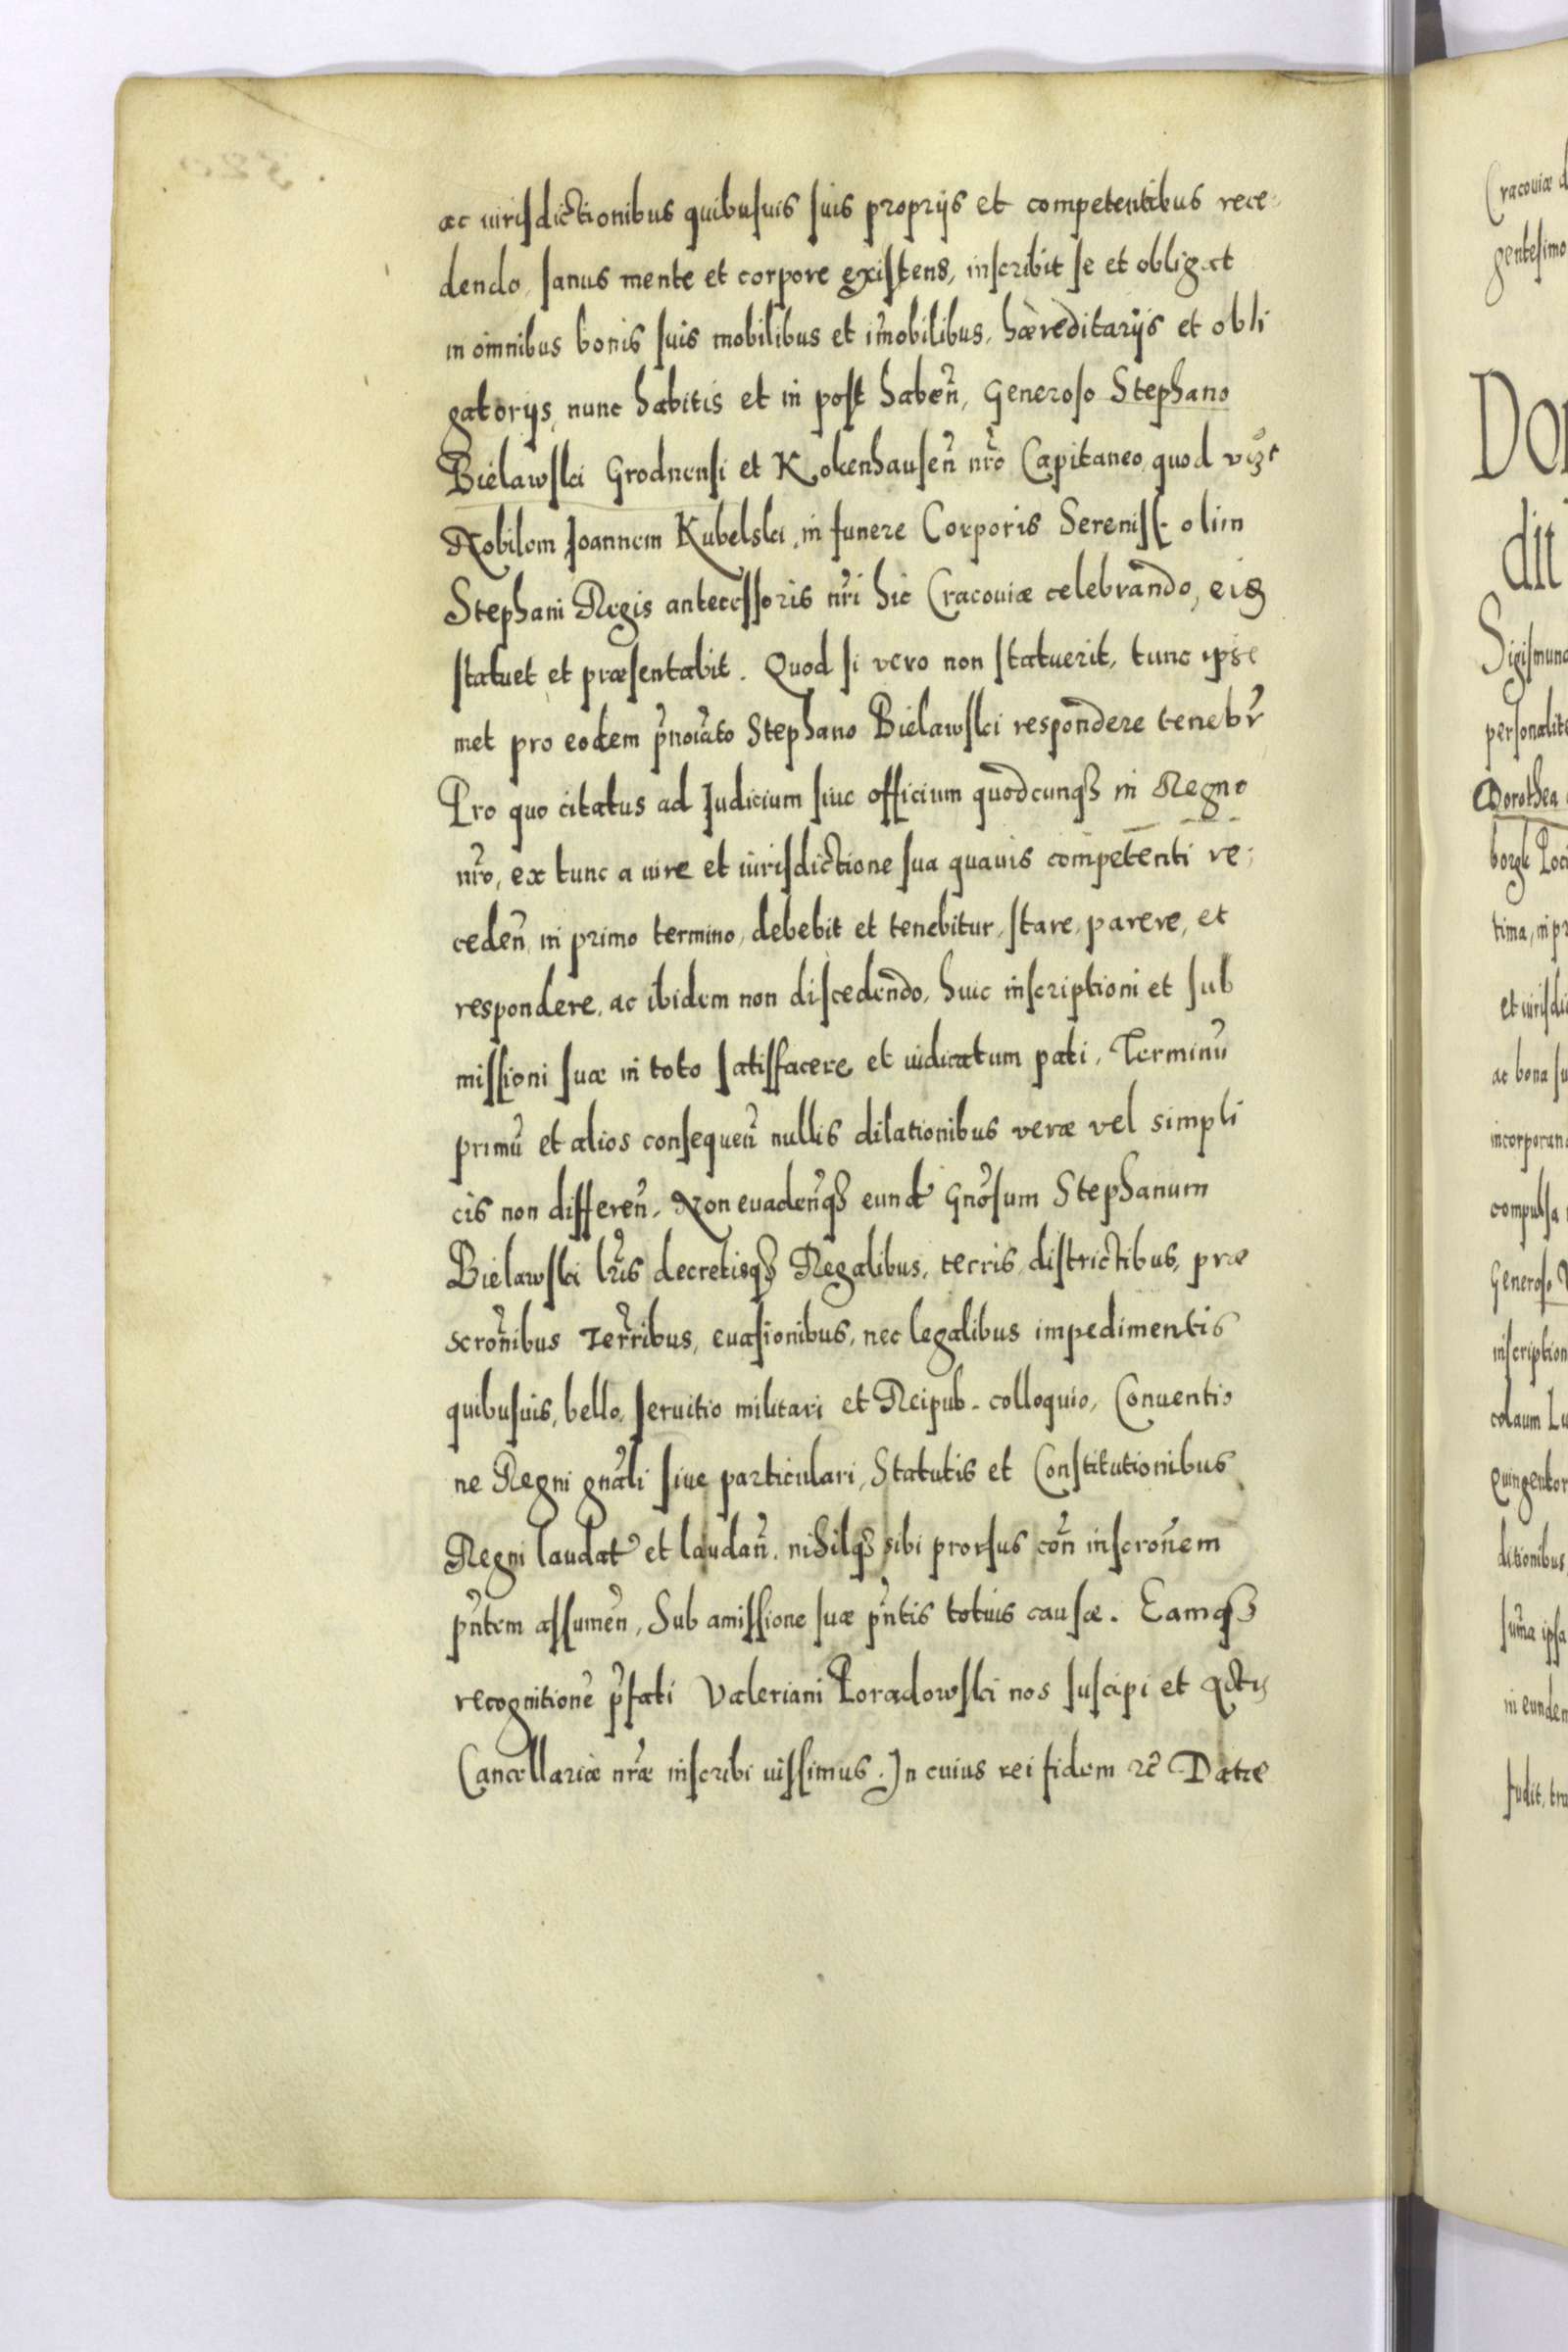 ac iurisdictionibus quibusuis suis proprijs et competentibus rece-
dendo, sanus mente et corpore existens, inscribit se et obligat
in omnibus bonis suis mobilibus et im̃obilibus, hæreditarijs et obli
gatorijs, nunc habitis et in post habeñ, Generoso Stephano
Bielawski Grodnensi et Kokenhauseñ nr̃o Capitaneo, quod
Nobilem Joannem Kubelski, in funere Corporis Sereniss: olim
Stephani Regis antecessoris nr̃i hic Cracouiæ celebrando, eis
statuet et præsentabit. Quod si vero non statuerit, tunc ipse
met pro eodem p̃noĩato Stephano Bielawski respondere tenebr̃
Pro quo citatus ad Judicium siue officium quodcunqꝫ in Regno
nr̃o, ex tunc a iure et iurisdictione sua quauis competenti re-
cedeñ, in primo termino, debebit et tenebitur, stare, parere, et
respondere, ac ibidem non discedendo, huic inscriptioni et sub
missioni suæ in toto satisfacere et iudicatum pati, Terminũ
primũ et alios consequeñ nullis dilationibus veræ vel simpli
cis non differeñ, Non euadeñqꝫ eund̃ Gnõsum Stephanum
Bielawski lr̃is decretisqꝫ Regalibus, terris, districtibus, præ
scroñibus Terr̃ribus, euasionibus, nec legalibus impedimentis
quibusuis, bello, seruitio militari et Reipub. colloquio, Conuentio
ne Regni gnãli siue particulari, Statutis et Constitutionibus
Regni laudat̃ et laudañ, nihilqꝫ sibi prorsus coñ inscroñem
pñtem assumeñ, Sub amissione suæ pñtis totius causæ. Eamqꝫ
recognitionẽ p̃fati Valeriani Poradowski nos suscipi et Actis
Cancellariæ nr̃æ inscribi iussimus. In cuius rei fidem &c̃ Datæ
Cracouiæ
gentesimo
dit
Sigismund
Dorothea
tima, in
ac bona
compulsa
Generoso
inscription
ditionibus
sum̃a ipsa
in eundem